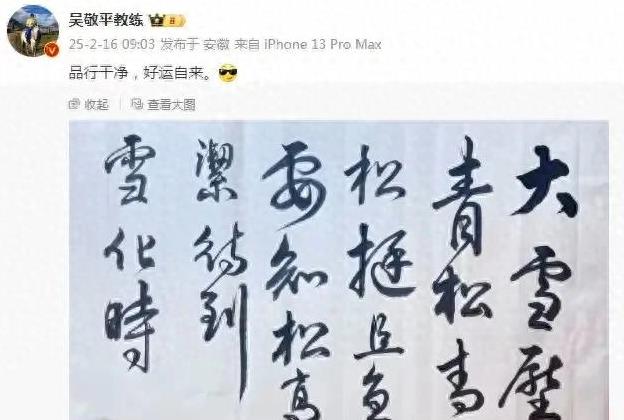 吴敬平教练
25-2-16 09:03 发布于 安徽 来自 iPhone 13 Pro Max
品行干净，好运自来。
收起 查看大图
大雪壓
青松青
松挺且直
要知松高
潔待到
雪化時